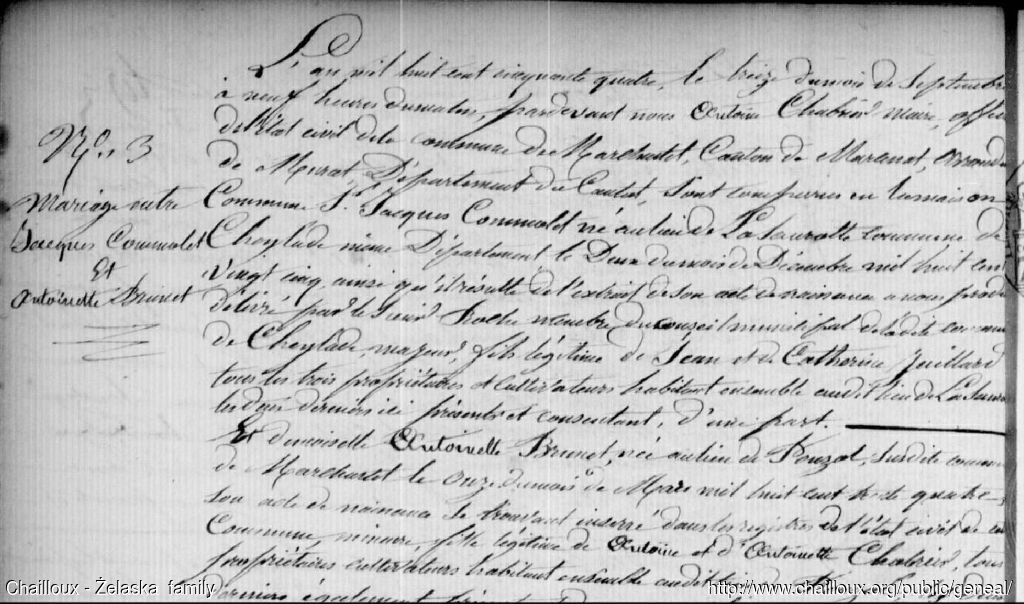 N°. 3
Mariage entre
Jacques Commolet
Et
Antoinette Brunet
L'an mil huit cent cinquante quatre, le treize du mois de Septembre
à neuf heures du matin, pardevant nous Antoine Chabrier maire, offici
de l'état civil de la commune de Marchastel, Canton de Marcenat, arrondis
de Murat Département du Cantal, sont comparus en la maison
Commune Sr. Jacques Commolet né au lieu de commune de
Cheylade même Département le Deux du mois de Décembre mil huit cent
vingt cinq ainsi qu'il résulte de l'extrait de son acte de naissance a nous produit
délivré par le Sieur Roche membre du conseil municipal de la dite commune
de Cheylade, majeur, fils légitime de Jean et de Catherine Juillard
tous les trois propriétaires et cultivateurs habitant ensemble audit lieu de
les deux derniers ici présents et consentant, d'une part.
Et demoiselle Antoinette Brunet, née au lieu de Pouzol, susdite commune
de Marchastel le onze du mois de Mars mil huit cent trente quatre,
son acte de naissance se trouvant inserré dans les registres de l'état civil de
Commune, mineure, fille légitime de Antoine et d'Antoinette Chabrier, tous
propriétaires cultivateurs habitant ensemble audit lieu
derniers également
Chailloux - Želaska family
http://www.chailloux.org/public/geneal/